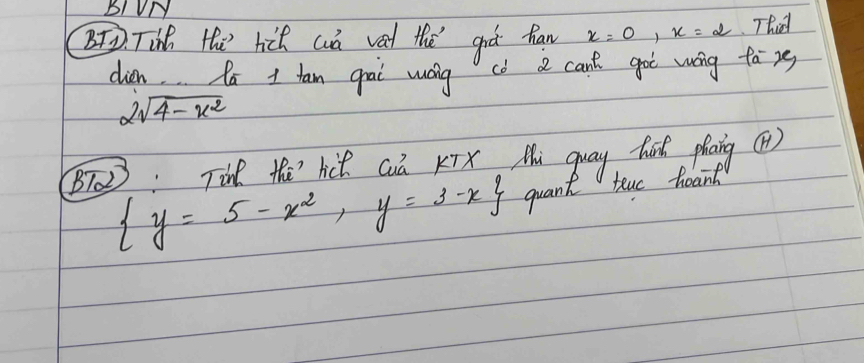 BTVN
BT1). Tính thể tích của vật thể giới hạn x = 0, x = 2. Thiết
diện... là 1 tam giác vuông có 2 cạnh góc vuông là x,
2√4 - x²
BT2 : Tính thể tích của KTX khi quay hình phẳng (H)
{ y = 5 - x², y = 3 - x } quanh trục hoành